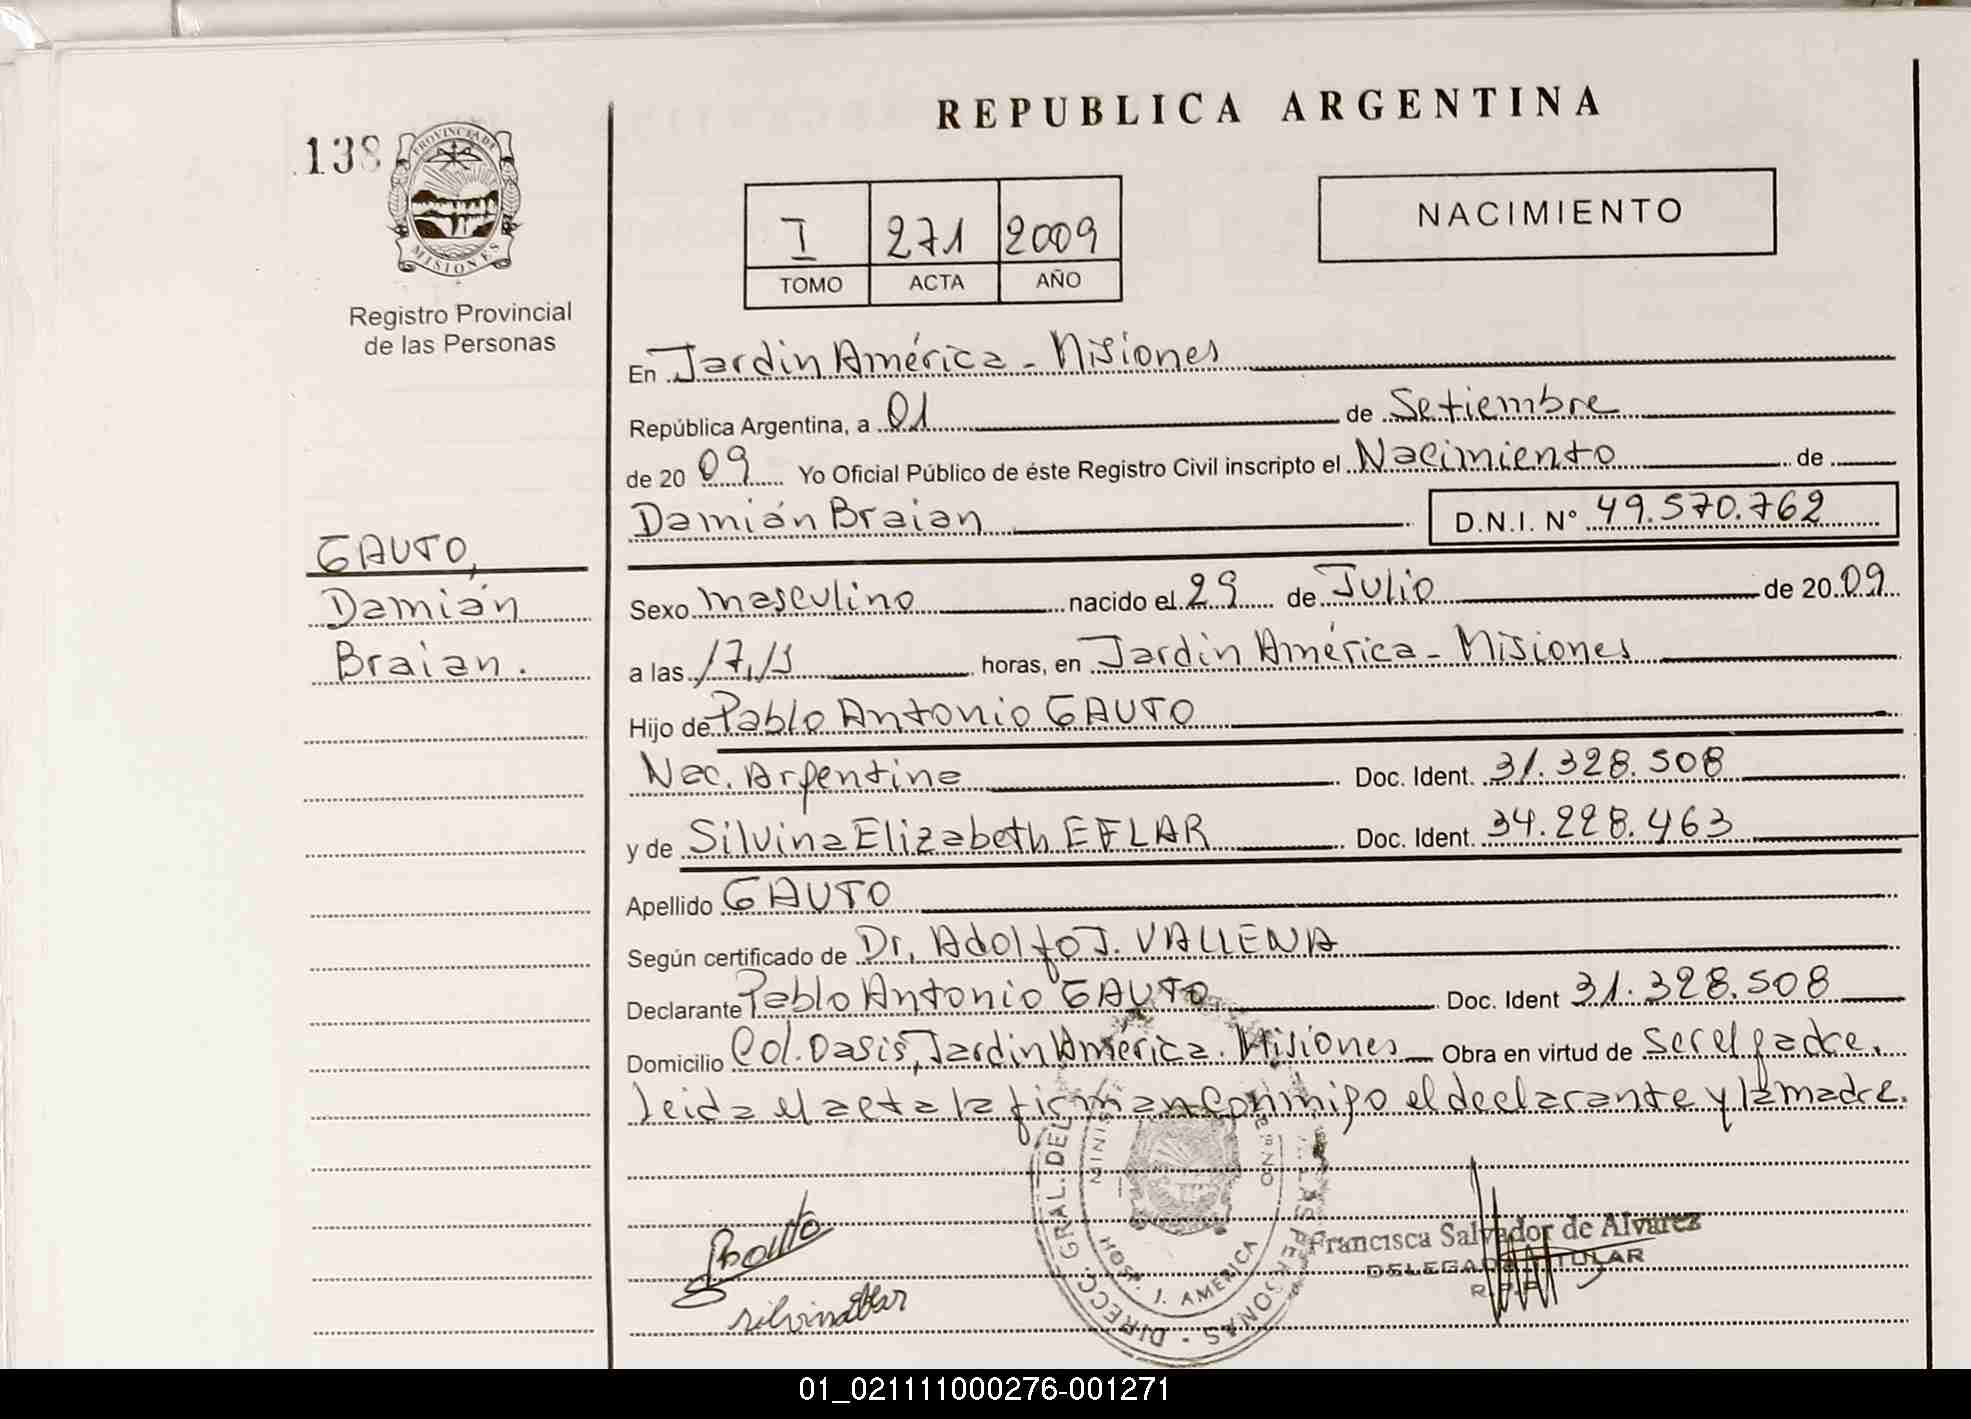 REPUBLICA ARGENTINA
138
PROVINCIA DE
MISIONES
Registro Provincial
de las Personas
I 271 2009
TOMO ACTA AÑO
NACIMIENTO
En Jardin América - Misiones
República Argentina, a 01 de Setiembre
de 2009 Yo Oficial Público de éste Registro Civil inscripto el Nacimiento de
Damián Braian D.N.I. N° 49.570.762
GAUTO,
Damián
Braian.
Sexo masculino nacido el 29 de Julio de 2009
a las 17,15 horas, en Jardin América - Misiones
Hijo de Pablo Antonio GAUTO
Nac. Argentina Doc. Ident. 31.328.508
y de Silvina Elizabeth EFLAR Doc. Ident. 34.228.463
Apellido GAUTO
Según certificado de Dr. Adolfo J. VALLENA
Declarante Pablo Antonio GAUTO Doc. Ident 31.328.508
Domicilio Col. Oasis, Jardin América. Misiones Obra en virtud de ser el padre.
Leida el acta la firman conmigo el declarante y la madre.
DIRECC. GRAL. DEL PERSONAS
HOSP. J. AMERICA
Francisca Salvador de Alvarez
DELEGADA TITULAR
R.P.P.
01_021111000276-001271